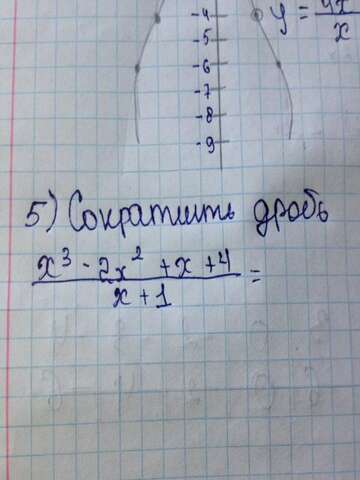 -4
-5
-6
-7
-8
-9
y = 4x
x
5) Сократить дробь
x³ - 2x² + x + 4 =
x + 1